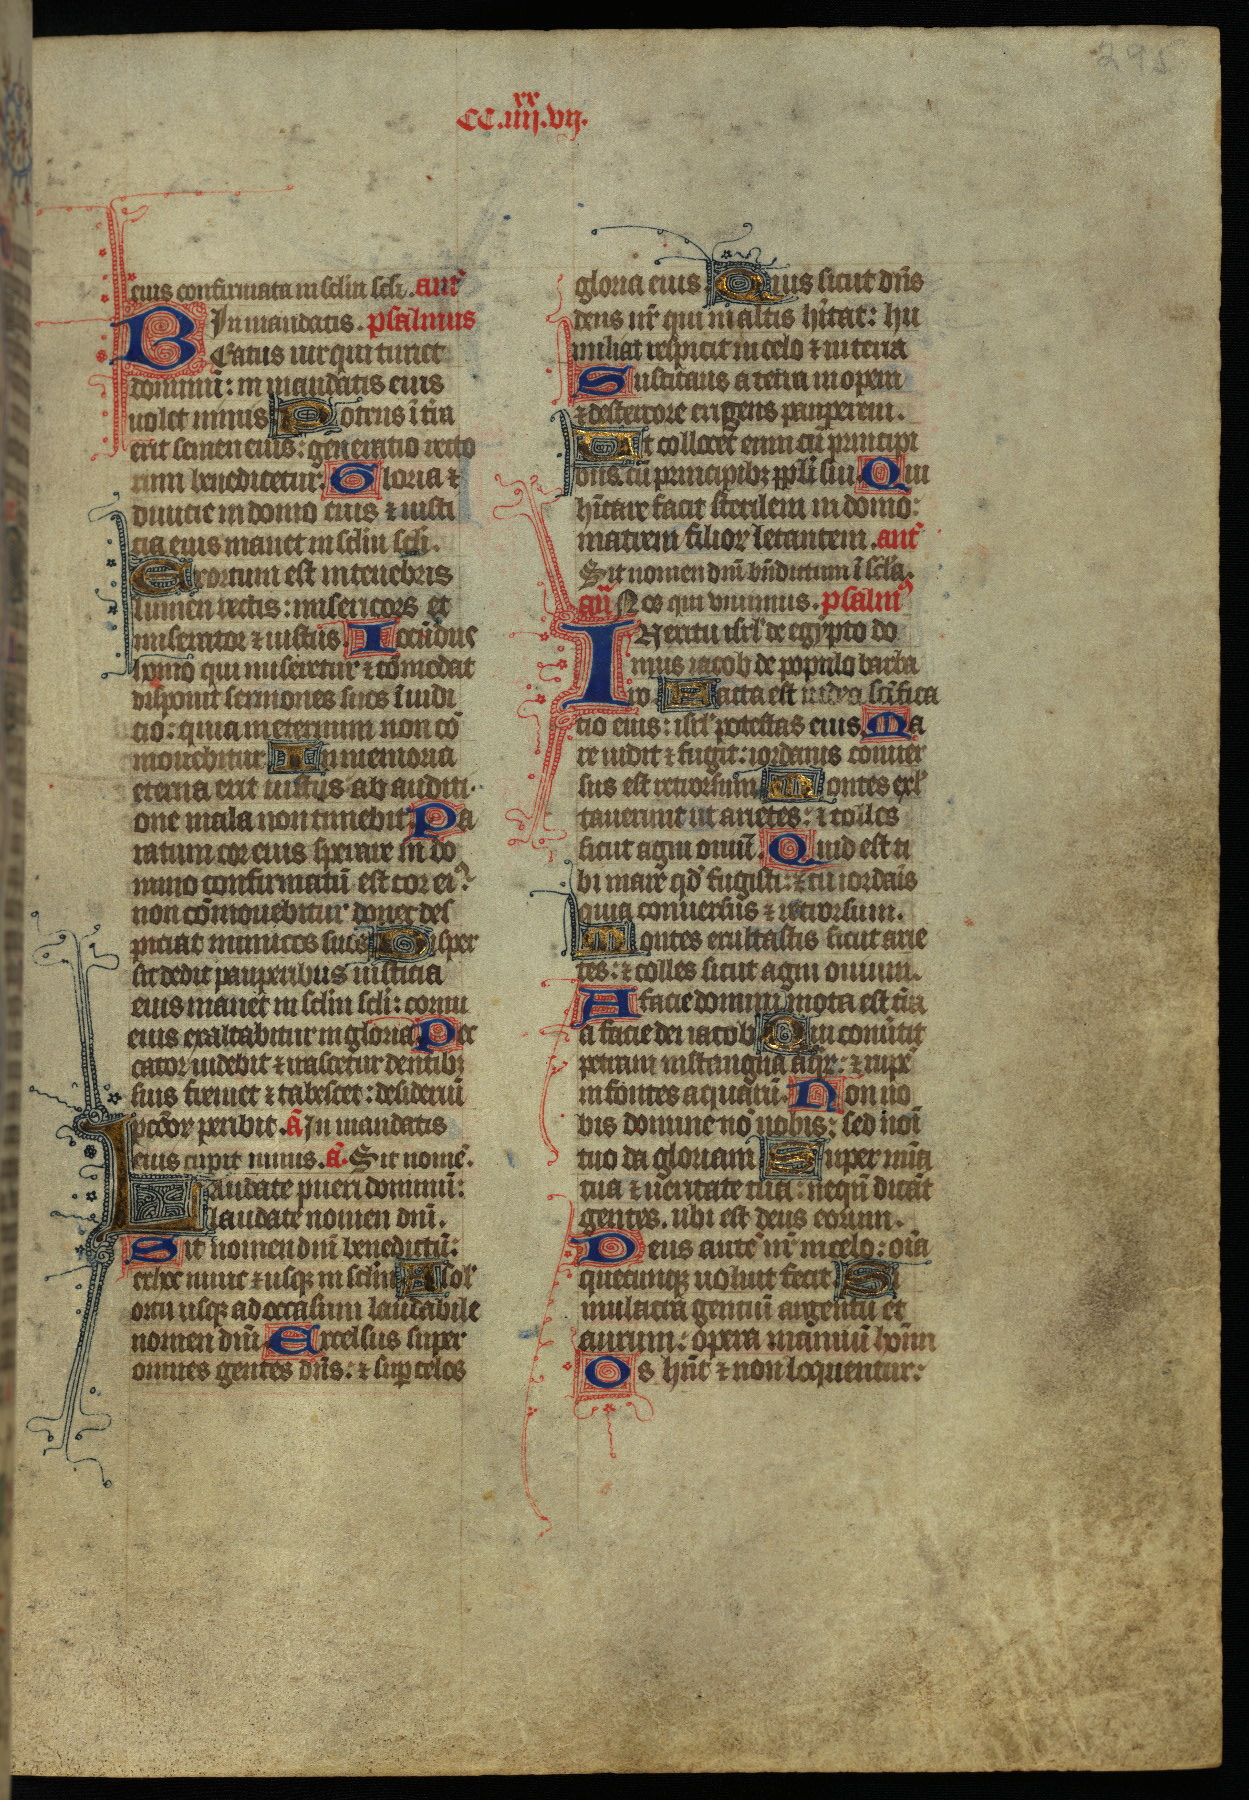 295
xx
CC.iiij.vij.
eius confirmata in sclm scli. ant̃
In mandatis. psalmus
BEatus uir qui timet
dominũ: in mandatis eius
uolet nimis Potens ĩ t̃ra
erit semen eius: generatio recto
rum benedicetur. Gloria ⁊
diuitie in domo eius ⁊ iusti
tia eius manet in sclm scli.
Exortum est in tenebris
lumen rectis: misericors et
miserator ⁊ iustus. Iocũdus
homo qui miseretur ⁊ cõmodat
disponit sermones suos ĩ iudi
tio: quia in eternum non cõ
mouebitur In memoria
eterna erit iustus ab auditi
one mala non timebit. Pa
ratum cor eius sperare in do
mino confirmatũ est cor eiꝰ
non cõmouebitur donec des
piciat inimicos suos Disper
sit dedit pauperibus iusticia
eius manet in sclm scli: cornu
eius exaltabitur in gloria Pec
cator uidebit ⁊ irascetur dentibꝫ
suis fremet ⁊ tabescet: desideriũ
pctõr peribit. ã In mandatis
eius cupit nimis. ã. Sit nomẽ.
Laudate pueri dominũ:
laudate nomen dñi.
Sit nomen dñi benedictũ:
ex hoc nunc ⁊ usqꝫ in sclm A sol'
ortu usqꝫ ad occasum laudabile
nomen dñi Excelsus super
omnes gentes dñs: ⁊ suꝑ celos
gloria eius. Quis sicut dñs
deus nr̃ qui in altis hĩtat: hu
milia respicit in celo ⁊ in terra
Suscitans a terra inopem
⁊ de stercore erigens pauperem.
Ut collocet eum cũ principi
bus. cũ principibꝫ ppl̃i sui. Qui
hĩtare facit sterilem in domo:
matrem filioꝝ letantem. ant̃
Sit nomen dñi bñdictum ĩ scl̃a.
añ Nos qui viuimus. psalmꝰ
IN exitu isrl' de egypto do
mus iacob de populo barba
ro. Facta est iudea scĩfica
tio eius: isrl' potestas eius. Ma
re uidit ⁊ fugit: iordanis conuer
sus est retrorsum. Montes exl'
tauerunt ut arietes: ⁊ colles
sicut agni ouiũ. Quid est ti
bi mare qđ fugisti: ⁊ tu iordãis
quia conuersus ⁊ retrorsum.
Montes exultastis sicut arie
tes: ⁊ colles sicut agni ouium.
A facie domini mota est t̃ra
a facie dei iacob Qui conũtit
petram in stangna aqꝝ: ⁊ rupẽ
in fontes aquarũ. Non no
bis domine nõ nobis: sed noĩ
tuo da gloriam Super mĩa
tua ⁊ ueritate tua: nequñ dicãt
gentes. ubi est deus eorum.
Deus autẽ nr̃ in celo: oĩa
quecunqꝫ uoluit fecit. Si
mulacra gentiũ argentũ et
aurum: opera manuũ hoĩm
Os hñt ⁊ non loquentur: